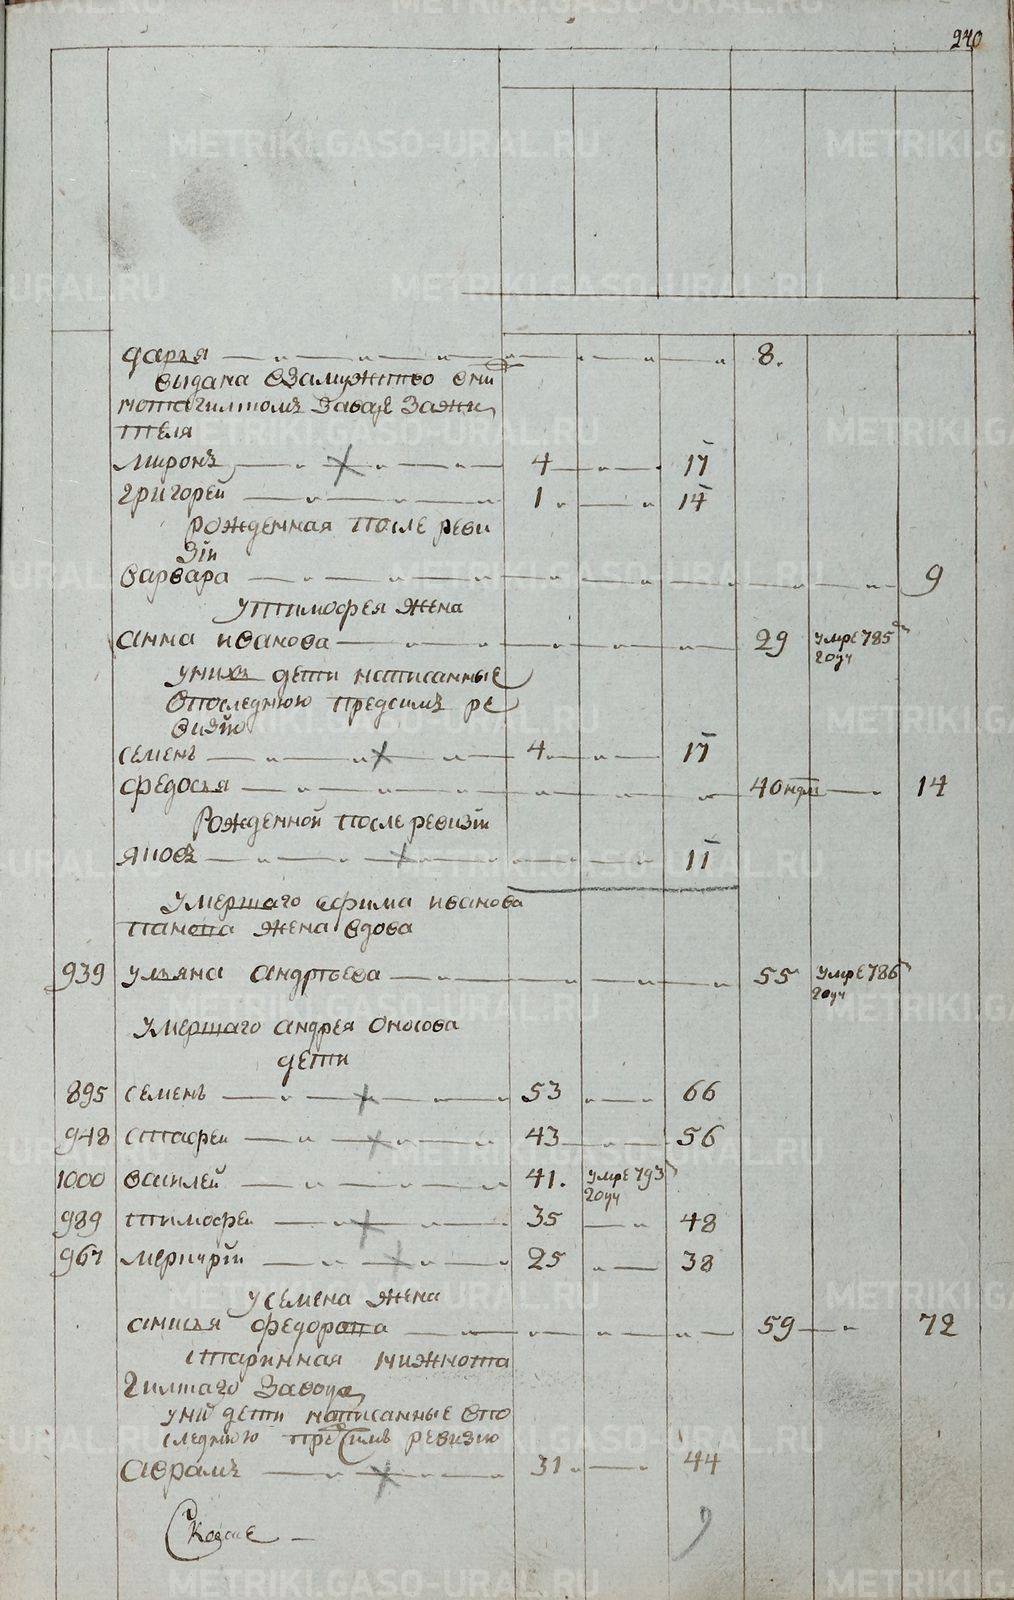 240
дарья 8.
выдана взамужство вни
нотагилском заводе зажи
теля
миронъ 4 17
григорей 1 14
рожденная после реви
зiи
варвара 9
утимофея жена
анна иванова 29 умре 785
году
уних дети написанные
впоследнюю предсимъ ре
визiю
семенъ 4 17
федосья 14
Рожденной после ревизiи
яковъ 11
умершаго ефима иванова
жена вдова
939 ульяна андреева 55 умре 786
году
умершаго андрея оносова
дети
895 семенъ 53 66
948 стафеи 43 56
1000 василей 41. умре 793
году
989 тимофеи 35 48
967 меркурiи 25 38
усемена жена
анисья федорова 59 72
старинная нижнота
гилскаго завода
уних дети написанные впо
следнюю пред симъ ревизию
аврамъ 31 44
METRIKI.GASO-URAL.RU